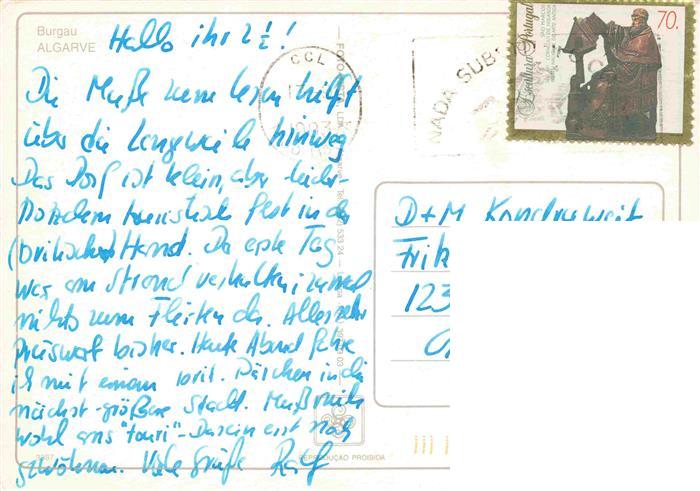 Burgau
ALGARVE
Hallo ihr 2 ½!
Die Muße zum Lesen hilft
über die Langeweile hinweg
Das Dorf ist klein, aber leider
trotzdem touristisch fest in der
(britischen) Hand. Der erste Tag
war am Strand verhalten, zumal
nichts zum Fleiten da. Alles sehr
preiswert bisher. Heute Abend fahre
ich mit einem brit. Pärchen in die
nächst-größere Stadt. Muß mich
wohl ans "Touri"-Dasein erst noch
gewöhnen. Viele Grüße Ralf
CCL
NADA SUBS
Escultura Portugal
70.
D+M
Frit
123
533 24
REPRODUÇÃO PROIBIDA